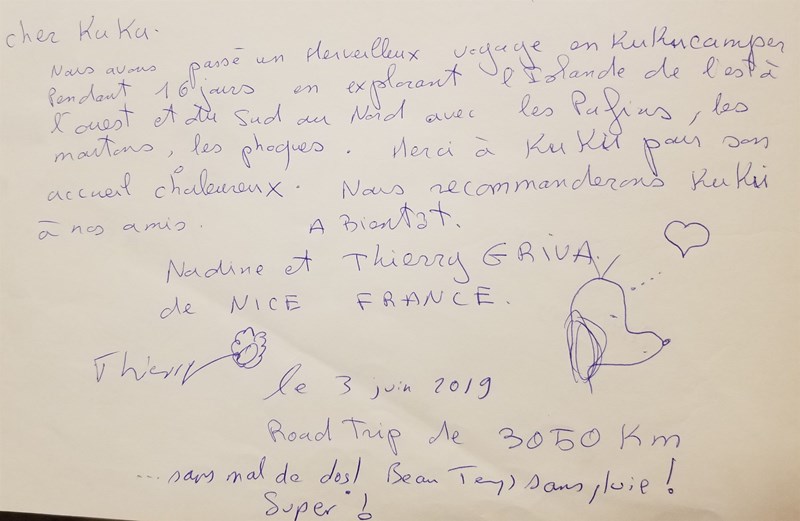 cher KuKu.
Nous avons passé un Merveilleux voyage en KuKucamper
Pendant 16 jours en explorant l'Islande de l'est à
l'ouest et du Sud au Nord avec les Pufins, les
moutons, les phoques. Merci à KuKu pour son
accueil chaleureux. Nous recommanderons KuKu
à nos amis. A Bientôt.
Nadine et Thierry GRIVA
de NICE FRANCE.
Thierry
le 3 juin 2019
Road Trip de 3050 Km
... sans mal de dos! Beau Temps sans pluie!
Super!